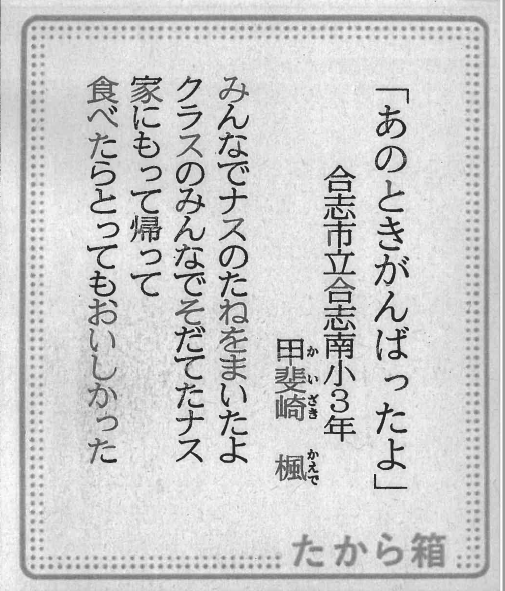 「あのときがんばったよ」
合志市立合志南小3年
甲斐崎 楓
かいざき かえで
みんなでナスのたねをまいたよ
クラスのみんなでそだてたナス
家にもって帰って
食べたらとってもおいしかった
たから箱